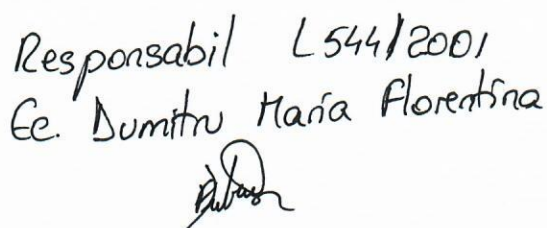 Responsabil L544/2001
Ec. Dumitru Maria Florentina